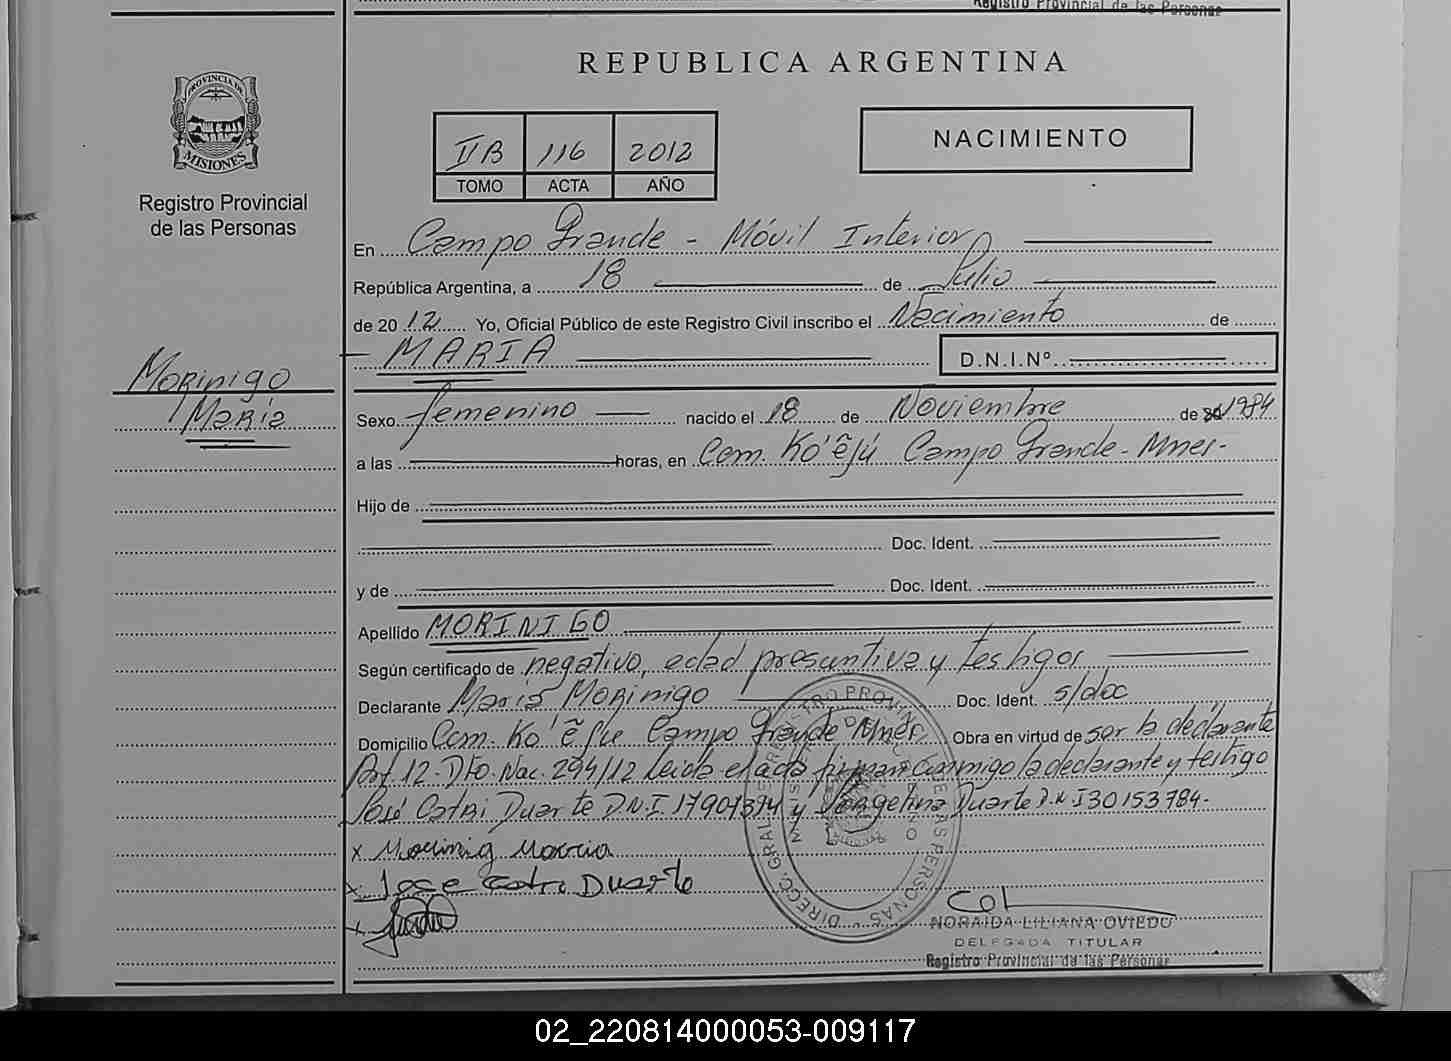 Registro Provincial de las Personas
REPUBLICA ARGENTINA
PROVINCIA DE
MISIONES
Registro Provincial
de las Personas
II B 116 2012
TOMO ACTA AÑO
NACIMIENTO
En Campo Grande - Móvil Interior
República Argentina, a 18 de Julio
de 20 12 Yo, Oficial Público de este Registro Civil inscribo el Nacimiento de
MARIA D.N.I.Nº
Morinigo
Maria
Sexo femenino nacido el 18 de Noviembre de 1984
a las horas, en Com. Ko'ẽjú Campo Grande - Mnes-
Hijo de
Doc. Ident.
y de Doc. Ident.
Apellido MORINIGO
Según certificado de negativo, edad presuntiva y testigos
Declarante Maria Morinigo Doc. Ident. s/doc
Domicilio Com. Ko'ẽju Campo Grande Mnes. Obra en virtud de ser la declarante
Art. 12. Dto. Nac. 294/12 Leida el acta firman conmigo la declarante y testigo
José Catri Duarte D.N.I. 17901374 y Duarte D.N.I 30153784-
x Morinig Marcia
x Jose Catri Duarte
x
NORAIDA LILIANA OVIEDO
DELEGADA TITULAR
Registro Provincial de las Personas
02_220814000053-009117